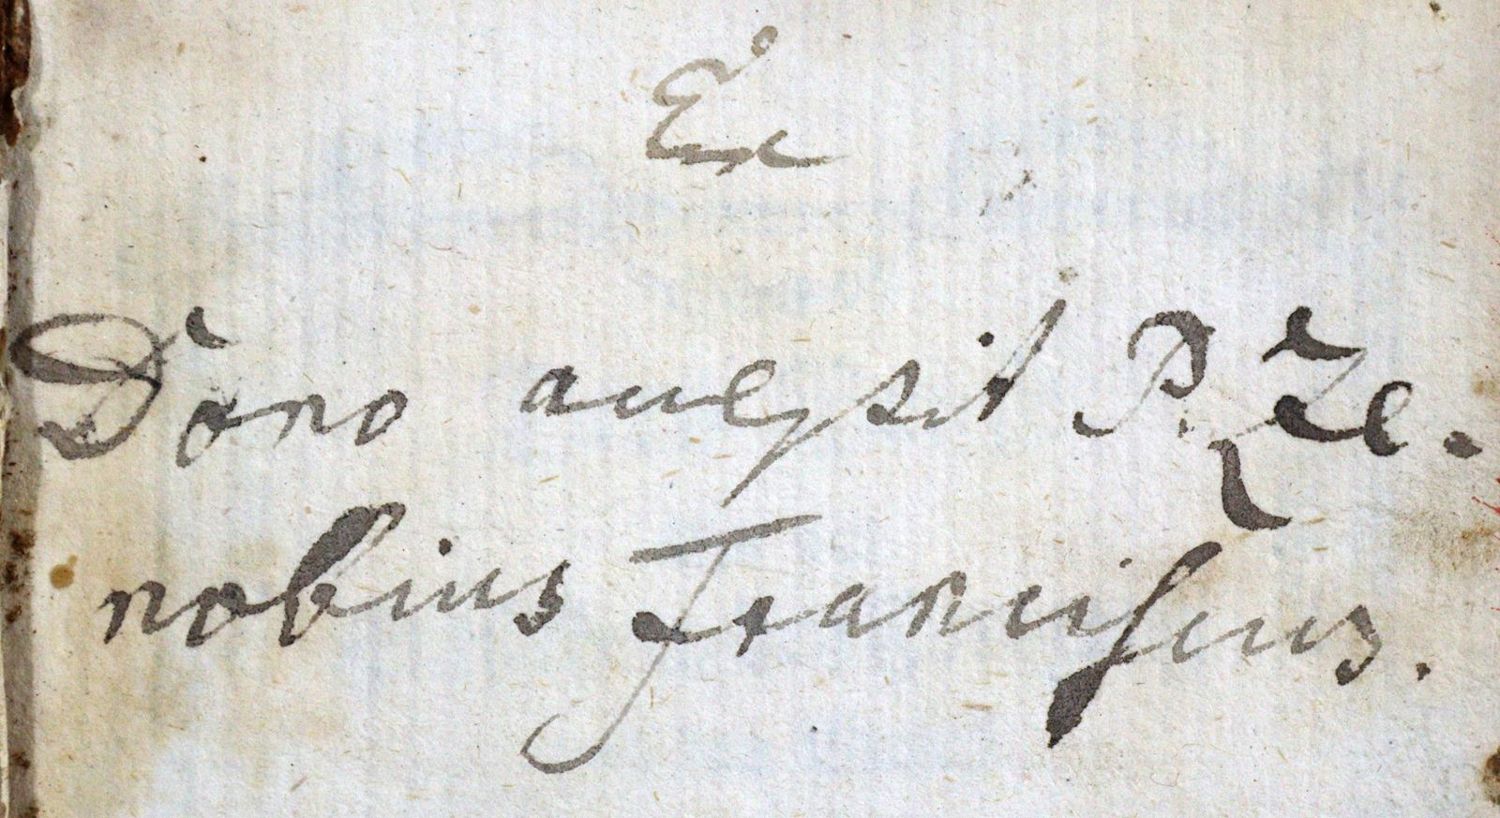 Ex
Dono auexit P. Ze-
nobius Franciscus.